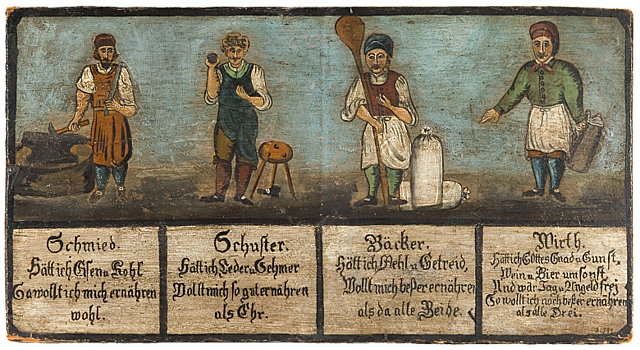 Schmied.
Hätt ich Eisen u Kohl
So wollt ich mich ernähren
wohl.
Schuster.
Hätt ich Leder u Schmer
Wollt mich so gut ernähren
als Ehr.
Bäcker.
Hätt ich Mehl u Getreid,
Wollt mich beßer ernähren
als da alle Beide.
Wirth.
Hätt ich Gottes Gnad u Gunst,
Wein u Bier umsonst,
Und wär Tax u Umgeld frei
So wollt ich noch beßer ernähren
als alle Drei.